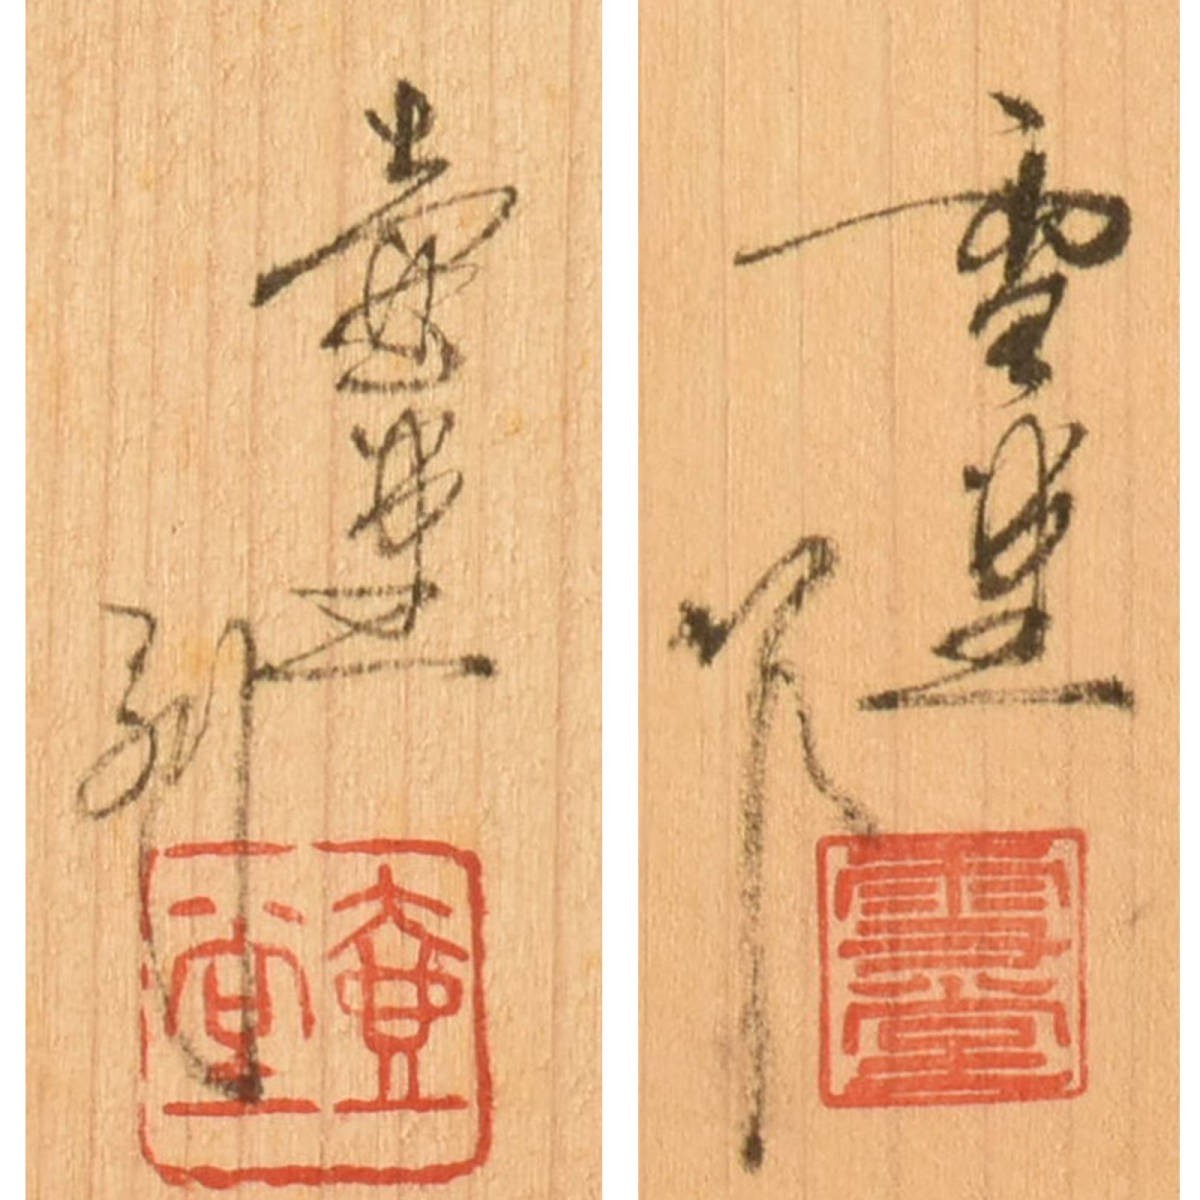 壺堂
刻
壺堂
雪堂
作
雪堂